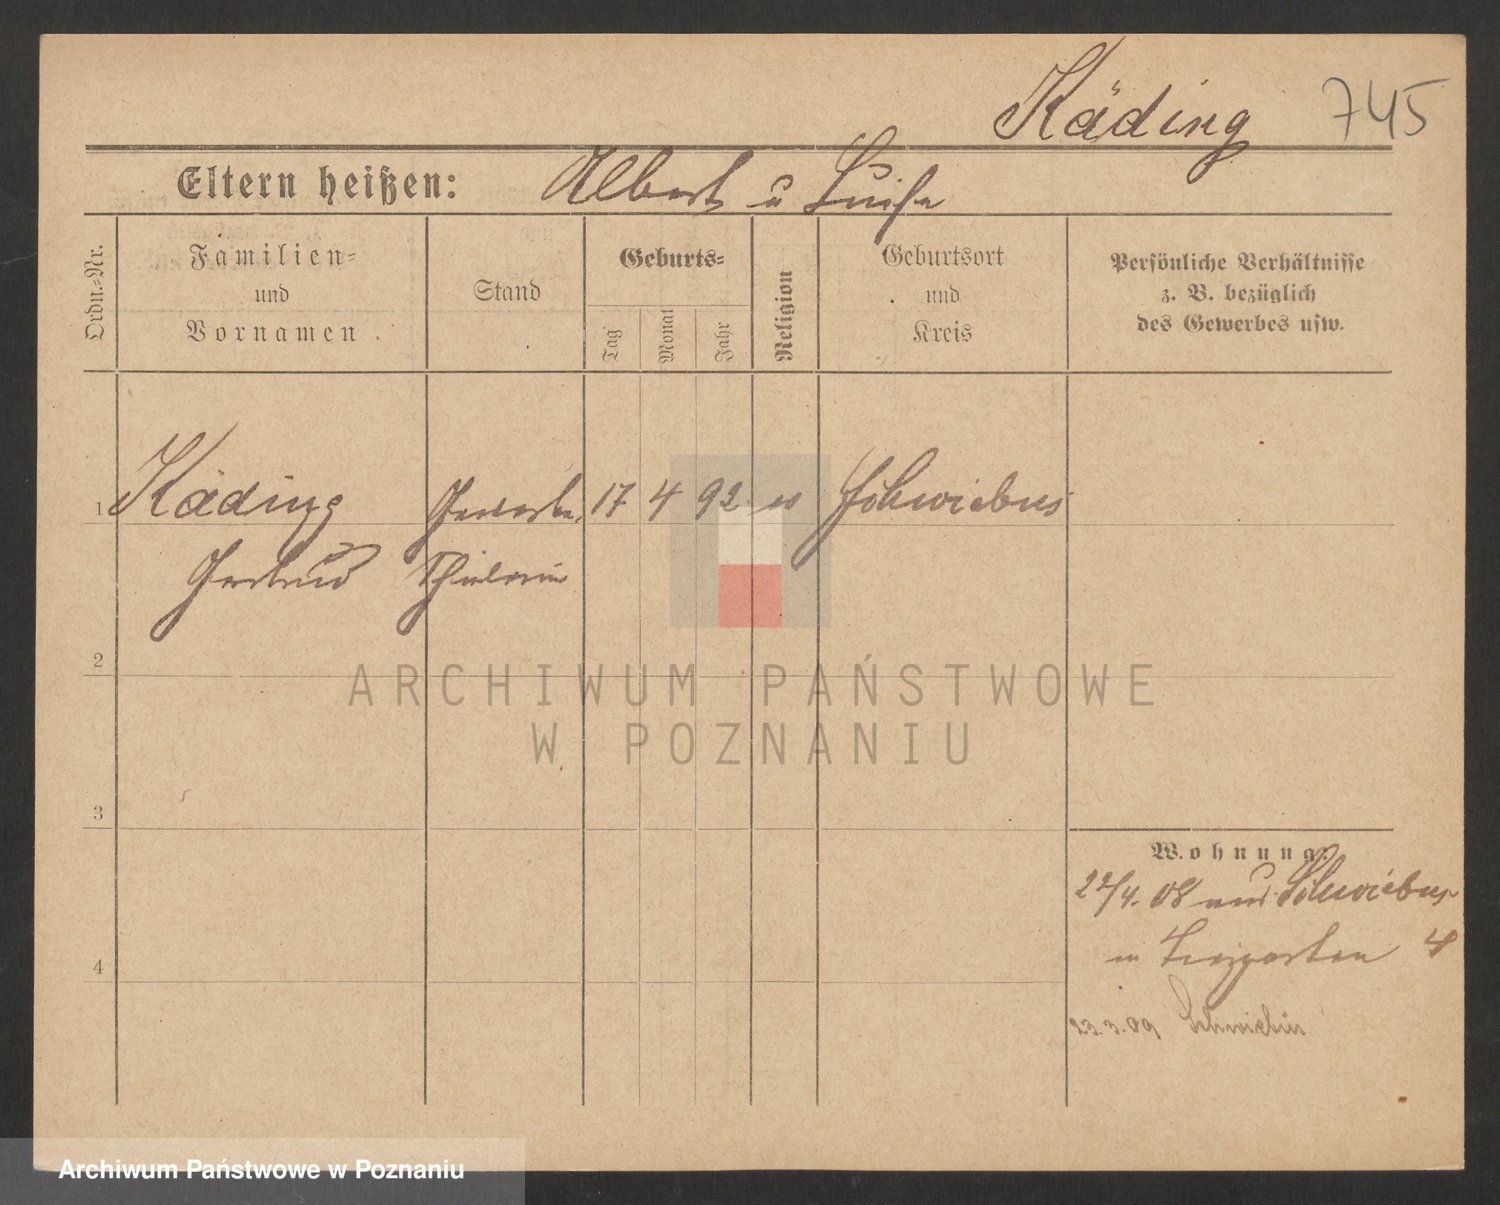 Käding 745
Eltern heißen: Albert u Luise
Ordn.-Nr.
Familien-
und
Vornamen.
Stand
Geburts-
Tag
Monat
Jahr
Religion
Geburtsort
und
Kreis
Persönliche Verhältnisse
z. B. bezüglich
des Gewerbes usw.
1 Käding 17 4 92 Schwiebus
Gertrud
2
ARCHIWUM PAŃSTWOWE
W POZNANIU
3
Wohnung.
22/4. 08 aus Schwiebus
4
23. 3. 09 Schwiebus
Archiwum Państwowe w Poznaniu